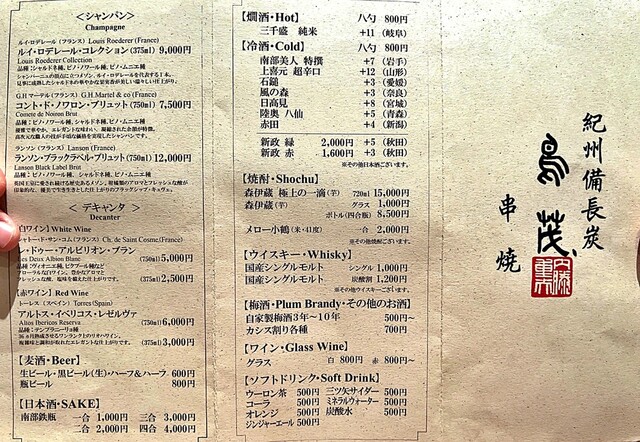 <シャンパン>
Champagne
ルイ・ロデレール (フランス) Louis Roederer (France)
ルイ・ロデレール・コレクション (375ml) 9,000円
Louis Roederer Collection
品種:シャルドネ種、ピノ・ノワール種、ピノ・ムニエ種
G.H マーテル (フランス) G.H Martel & co (France)
コント・ド・ノワロン・ブリュット (750ml) 7,500円
Comete de Noiron Brut
品種:ピノ・ノワール種、シャルドネ種、ピノ・ムニエ種
ランソン (フランス) Lanson (France)
ランソン・ブラックラベル・ブリュット (750ml) 12,000円
Lanson Black Label Brut
品種:ピノ・ノワール種、シャルドネ種、ピノ・ムニエ種
<デキャンタ>
Decanter
【白ワイン】White Wine
シャトー・ド・サン・コム (フランス) Ch. de Saint Cosme (France)
レ・ドゥー・アルビリオン・ブラン
Les Deux Albion Blanc (750ml) 5,000円
(375ml) 2,500円
【赤ワイン】Red Wine
トーレス (スペイン) Torres (Spain)
アルトス・イベリコス・レゼルヴァ
Altos Ibericos Reserva (750ml) 6,000円
品種:テンプラニーリョ種
(375ml) 3,000円
【麦酒・Beer】
生ビール・黒ビール(生)・ハーフ&ハーフ 600円
瓶ビール 800円
【日本酒・SAKE】
南部鉄瓶 一合 1,000円 三合 3,000円
二合 2,000円 四合 4,000円
【燗酒・Hot】 八勺 800円
三千盛 純米 +11 (岐阜)
【冷酒・Cold】 八勺 800円
南部美人 特撰 +7 (岩手)
上喜元 超辛口 +12 (山形)
石鎚 +3 (愛媛)
風の森 +3 (奈良)
日高見 +8 (宮城)
陸奥 八仙 +5 (青森)
赤田 +4 (新潟)
新政 緑 2,000円 +5 (秋田)
新政 赤 1,600円 +3 (秋田)
※その他日本酒ございます。
【焼酎・Shochu】
森伊蔵 極上の一滴(芋) 720ml 15,000円
森伊蔵(芋) グラス 1,000円
ボトル(四合瓶) 8,500円
メロー小鶴 (米・41度) 一合 2,000円
※その他焼酎ございます。
【ウイスキー・Whisky】
国産シングルモルト シングル 1,000円
国産シングルモルト 炭酸割 1,200円
※その他ウイスキーございます。
【梅酒・Plum Brandy・その他のお酒】
自家製梅酒3年~10年 500円~
カシス割り各種 700円
【ワイン・Glass Wine】
グラス 白 800円 赤 800円~
【ソフトドリンク・Soft Drink】
ウーロン茶 500円 三ツ矢サイダー 500円
コーラ 500円 ミネラルウォーター 500円
オレンジ 500円 炭酸水 500円
ジンジャーエール 500円
紀州備長炭
鳥茂
串焼